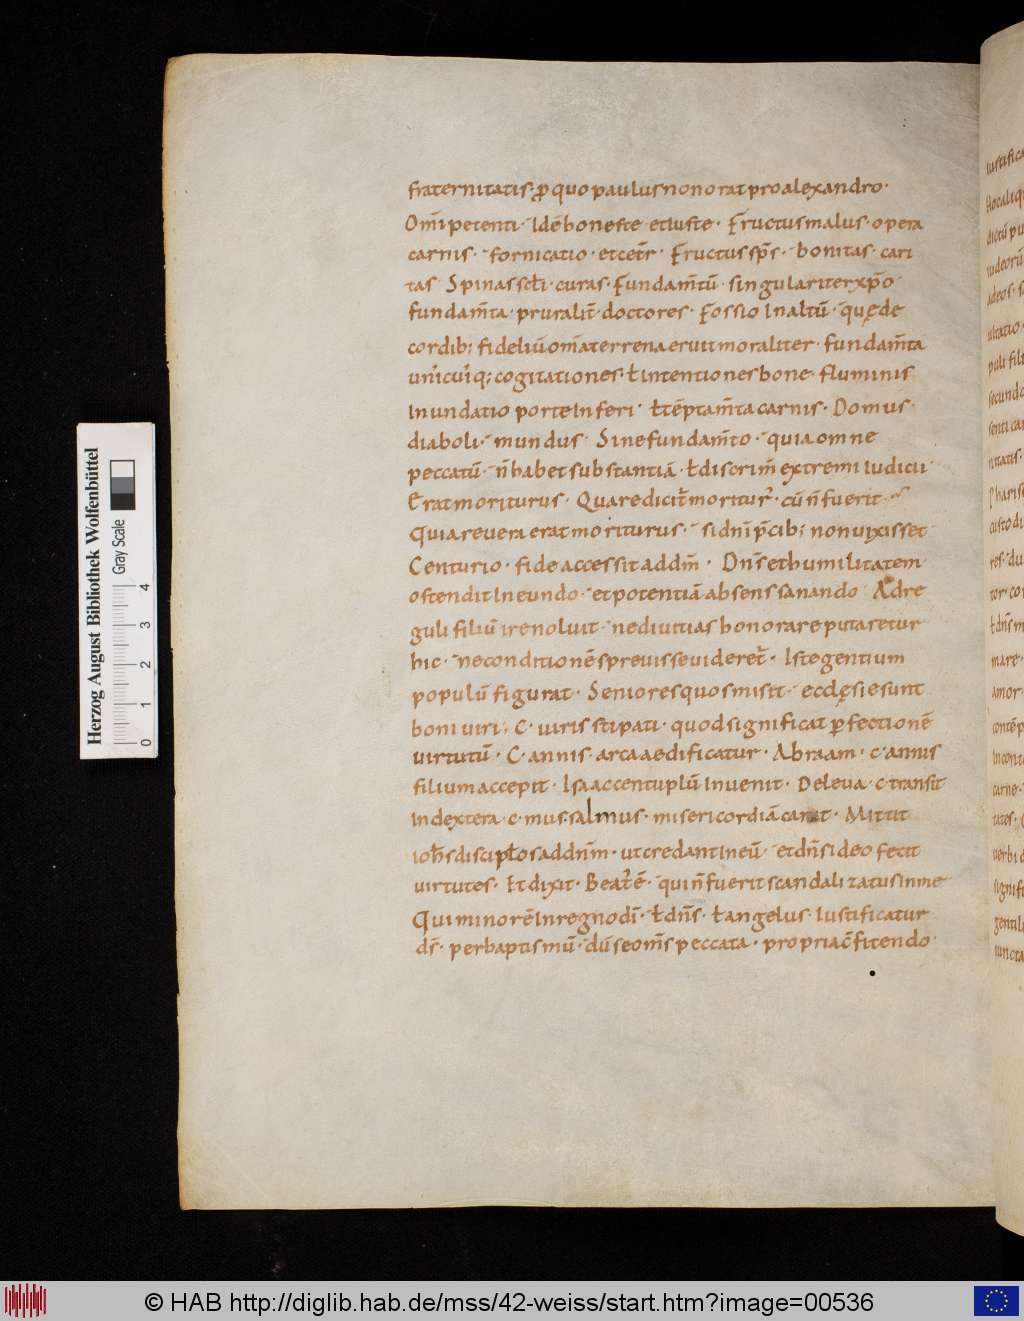 fraternitatis· ꝓ quo paulus non orat pro alexandro·
Om̄i petenti· Idē bonefte et Iufte· Fructus malus· opera
carnis· fornicatio· et cet̄r· Fructus sp̄s· bonitas· cari
tas Spinas sctī· curas· Fundam̄tū· singulariter xp̄o
fundam̄ta· pruralit̄· doctores· Fossio In altū· quęde
cordib; fideliū om̄a terrena eruit moraliter· fundam̄ta
unicuiq; cogitationes· ł intentiones bone· fluminis
Inundatio porte Inferi· ł tēptam̄ta carnis· Domus·
diaboli· mundus· Sine fundam̄to· quia omne
peccatū· n̄ habet substantiā· ł discrim̄ extremi Iudicii
Erat moriturus· Quare dicit̄ moritur̄· cū n̄ fuerit
Quia revera erat moriturus· si dn̄i p̄cib; non vixisset
Centurio· fide accessit ad dm̄· Dn̄s et humilitatem
oftendit In eundo· et potentiā absens sanando Ad re
guli filiū ire noluit· ne divitias honorare putaretur
hic· ne conditionē sprevisse videret̄· Iste gentium
populū figurat· Seniores quos misit· ecclęsie sunt
boni viri; C· viris stipati· quod significat ꝑfectionē
virtutū· C· annis· arca aedificatur· Abraam· c· annis
filium accepit· Isaac centuplū Invenit· De leva· c· transit
In dextera· c· mus· salmus· misericordiā canat· Mittit
ioh̄s discip̄los ad dn̄m· ut credant In eū· et dn̄s ideo fecit
virtutes· Et dixit· Beat̄ ē· qui n̄ fuerit scandalizatus in me
Qui minor ē In regno dī· ł dn̄s· ł angelus· Iustificatur
ds̄· per baptismū· dū se om̄s peccata· propria c̄fitendo
Herzog August Bibliothek Wolfenbüttel
Gray Scale
0 1 2 3 4
© HAB http://diglib.hab.de/mss/42-weiss/start.htm?image=00536